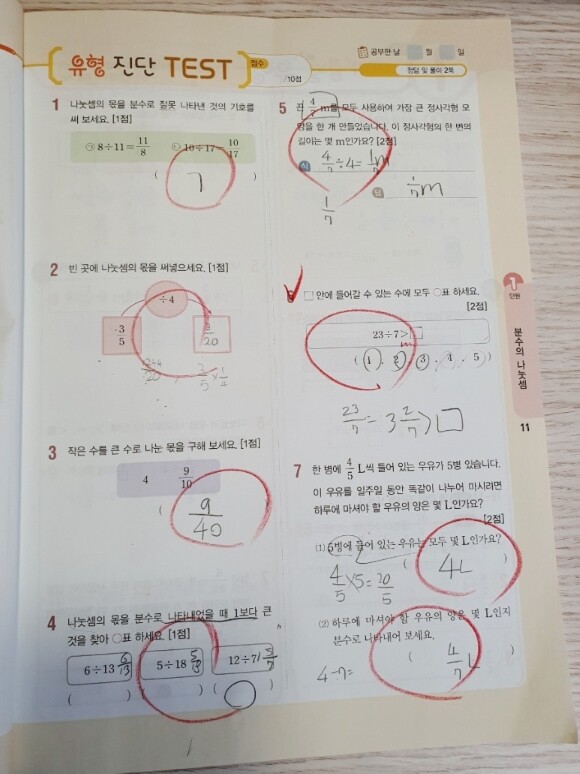 유형 진단 TEST
점수
/10점
공부한 날 월 일
정답 및 풀이 2쪽
1 나눗셈의 몫을 분수로 잘못 나타낸 것의 기호를
써 보세요. [1점]
㉠ 8÷11=11/8 ㉡ 10÷17=10/17
( ㄱ )
2 빈 곳에 나눗셈의 몫을 써넣으세요. [1점]
÷4
3/5
3/20
3/5 × 1/4
3 작은 수를 큰 수로 나눈 몫을 구해 보세요. [1점]
4 9/10
( 9/40 )
4 나눗셈의 몫을 분수로 나타내었을 때 1보다 큰
것을 찾아 ○표 하세요. [1점]
6÷13 6/13 5÷18 12÷7
( ) ( ) ( ○ )
5 4/7 m를 모두 사용하여 가장 큰 정사각형 모
양을 한 개 만들었습니다. 이 정사각형의 한 변의
길이는 몇 m인가요? [2점]
식 4/7÷4=1/7m
답 1/7m
1/7
□ 안에 들어갈 수 있는 수에 모두 ○표 하세요.
[2점]
23÷7>□
( 1, 2, 3, 4, 5 )
23/7=3 2/7>□
7 한 병에 4/5 L씩 들어 있는 우유가 5병 있습니다.
이 우유를 일주일 동안 똑같이 나누어 마시려면
하루에 마셔야 할 우유의 양은 몇 L인가요?
[2점]
(1) 5병에 들어 있는 우유는 모두 몇 L인가요?
4/5×5=20/5
( 4L )
(2) 하루에 마셔야 할 우유의 양은 몇 L인지
분수로 나타내어 보세요.
4÷7=
( 4/7 L )
1
단원
분수의 나눗셈
11